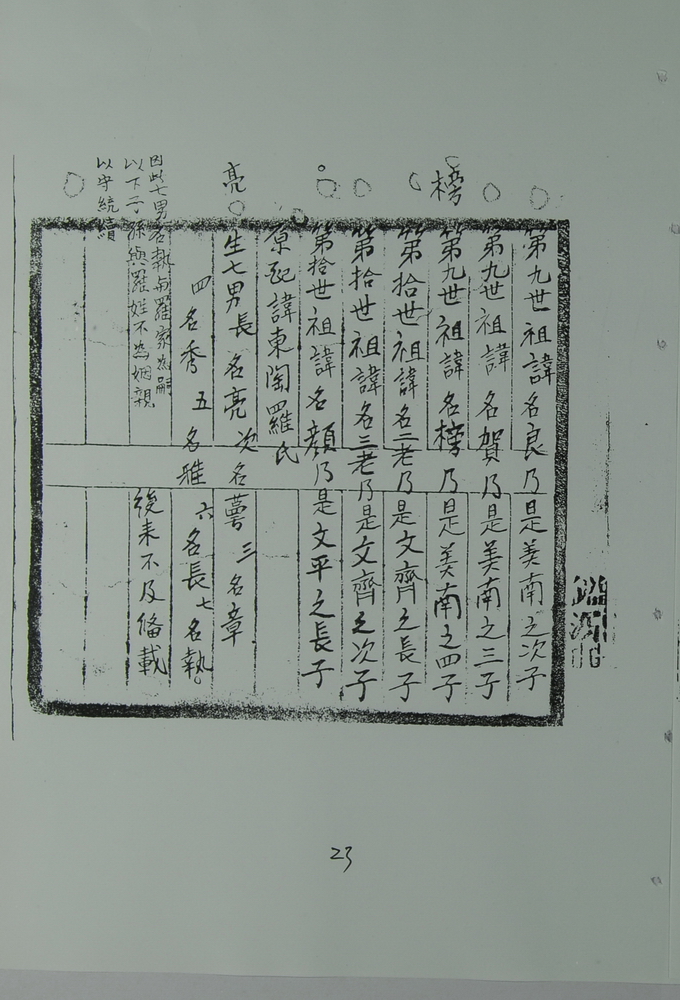 第九世祖諱名良乃是美南之次子
第九世祖諱名賀乃是美南之三子
榜
第九世祖諱名榜乃是美南之四子
第拾世祖諱名二老乃是文齊之長子
第拾世祖諱名三老乃是文齊之次子
第拾世祖諱名顏乃是文平之長子
原配諱東陶羅氏
亮
生七男長名亮次名蕚三名章
四名秀五名雅六名長七名執
因此七男名執與羅家為嗣
以下子孫與羅姓不為姻親
以守統續
後来不及偹載
23